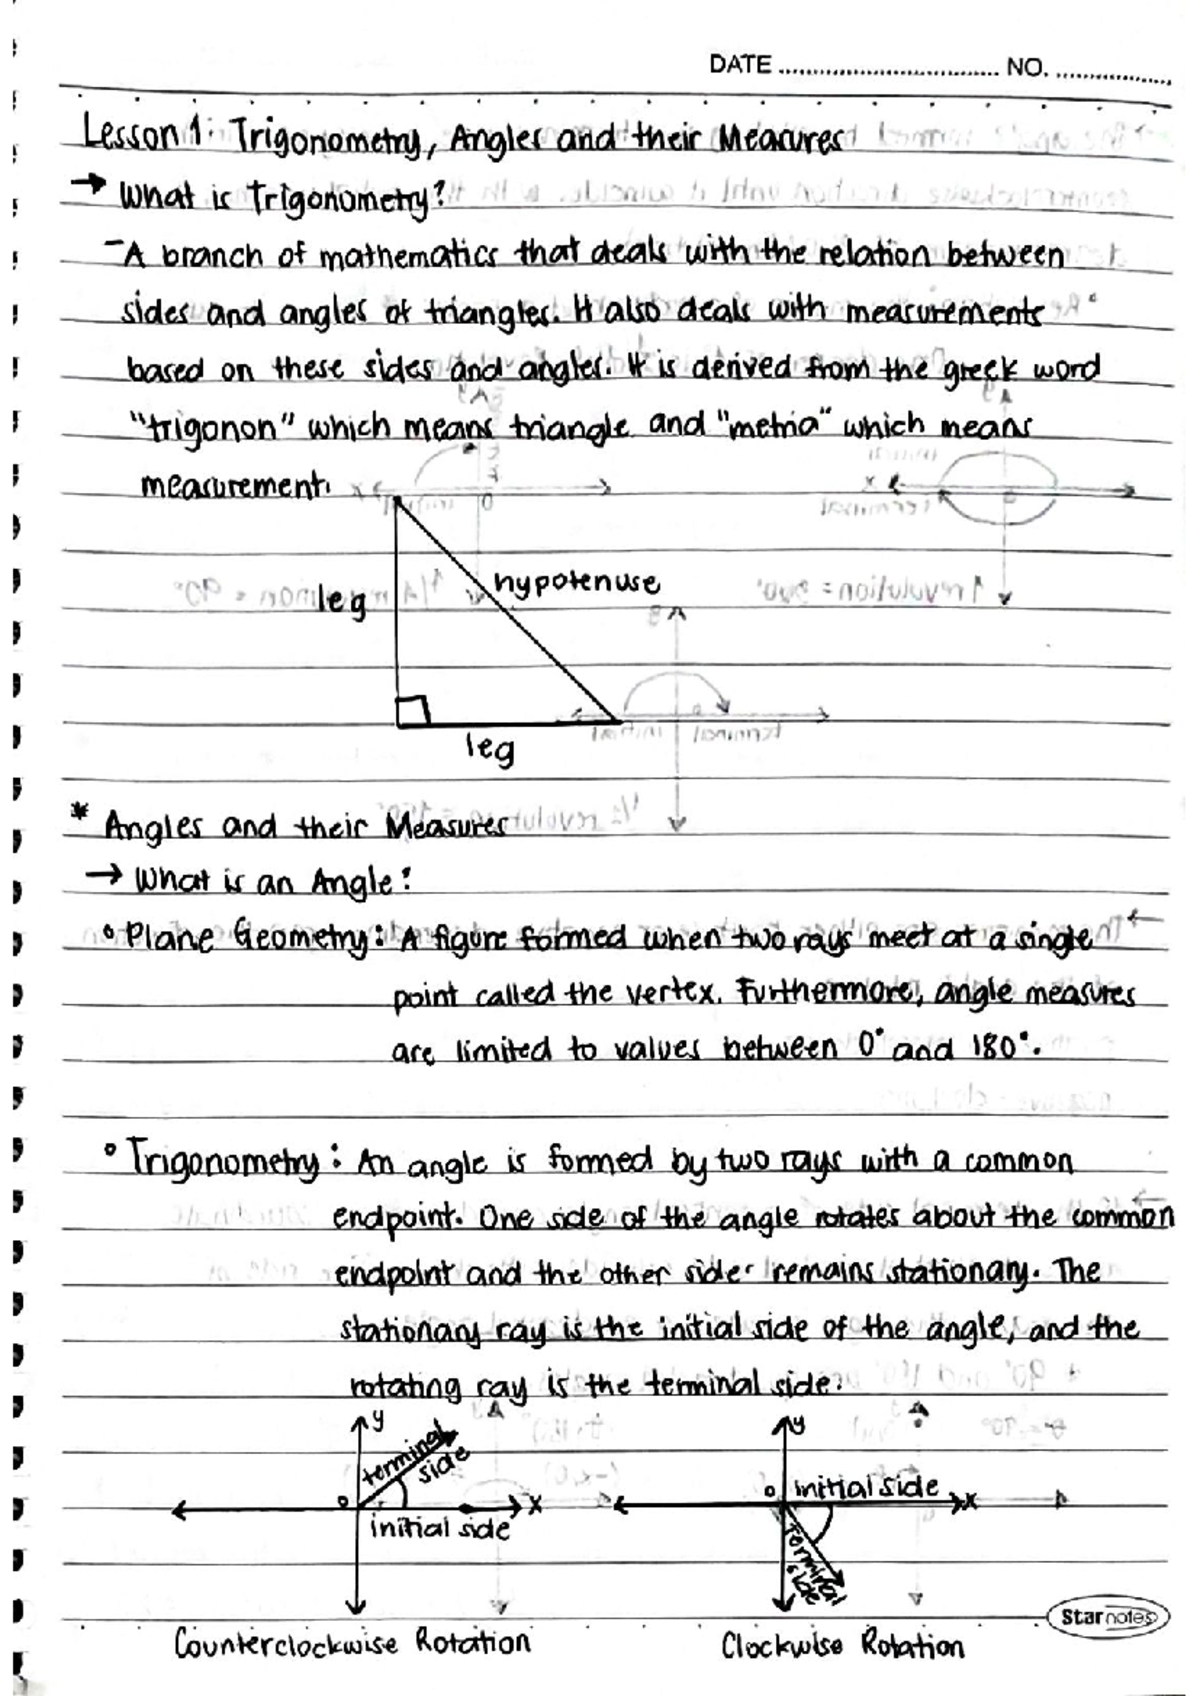 DATE ................................ NO. ..................
Lesson 1: Trigonometry, Angles and their Measures
→ What is Trigonometry?
- A branch of mathematics that deals with the relation between
sides and angles of triangles. It also deals with measurements
based on these sides and angles. It is derived from the greek word
"trigonon" which means triangle and "metria" which means
measurement.
leg
hypotenuse
leg
* Angles and their Measures
→ What is an Angle?
° Plane Geometry: A figure formed when two rays meet at a single
point called the vertex. Furthermore, angle measures
are limited to values between 0° and 180°.
° Trigonometry: An angle is formed by two rays with a common
endpoint. One side of the angle rotates about the common
endpoint and the other side remains stationary. The
stationary ray is the initial side of the angle, and the
rotating ray is the terminal side.
y
terminal side
o
x
initial side
Counterclockwise Rotation
y
o
initial side
x
terminal side
Clockwise Rotation
Starnotes